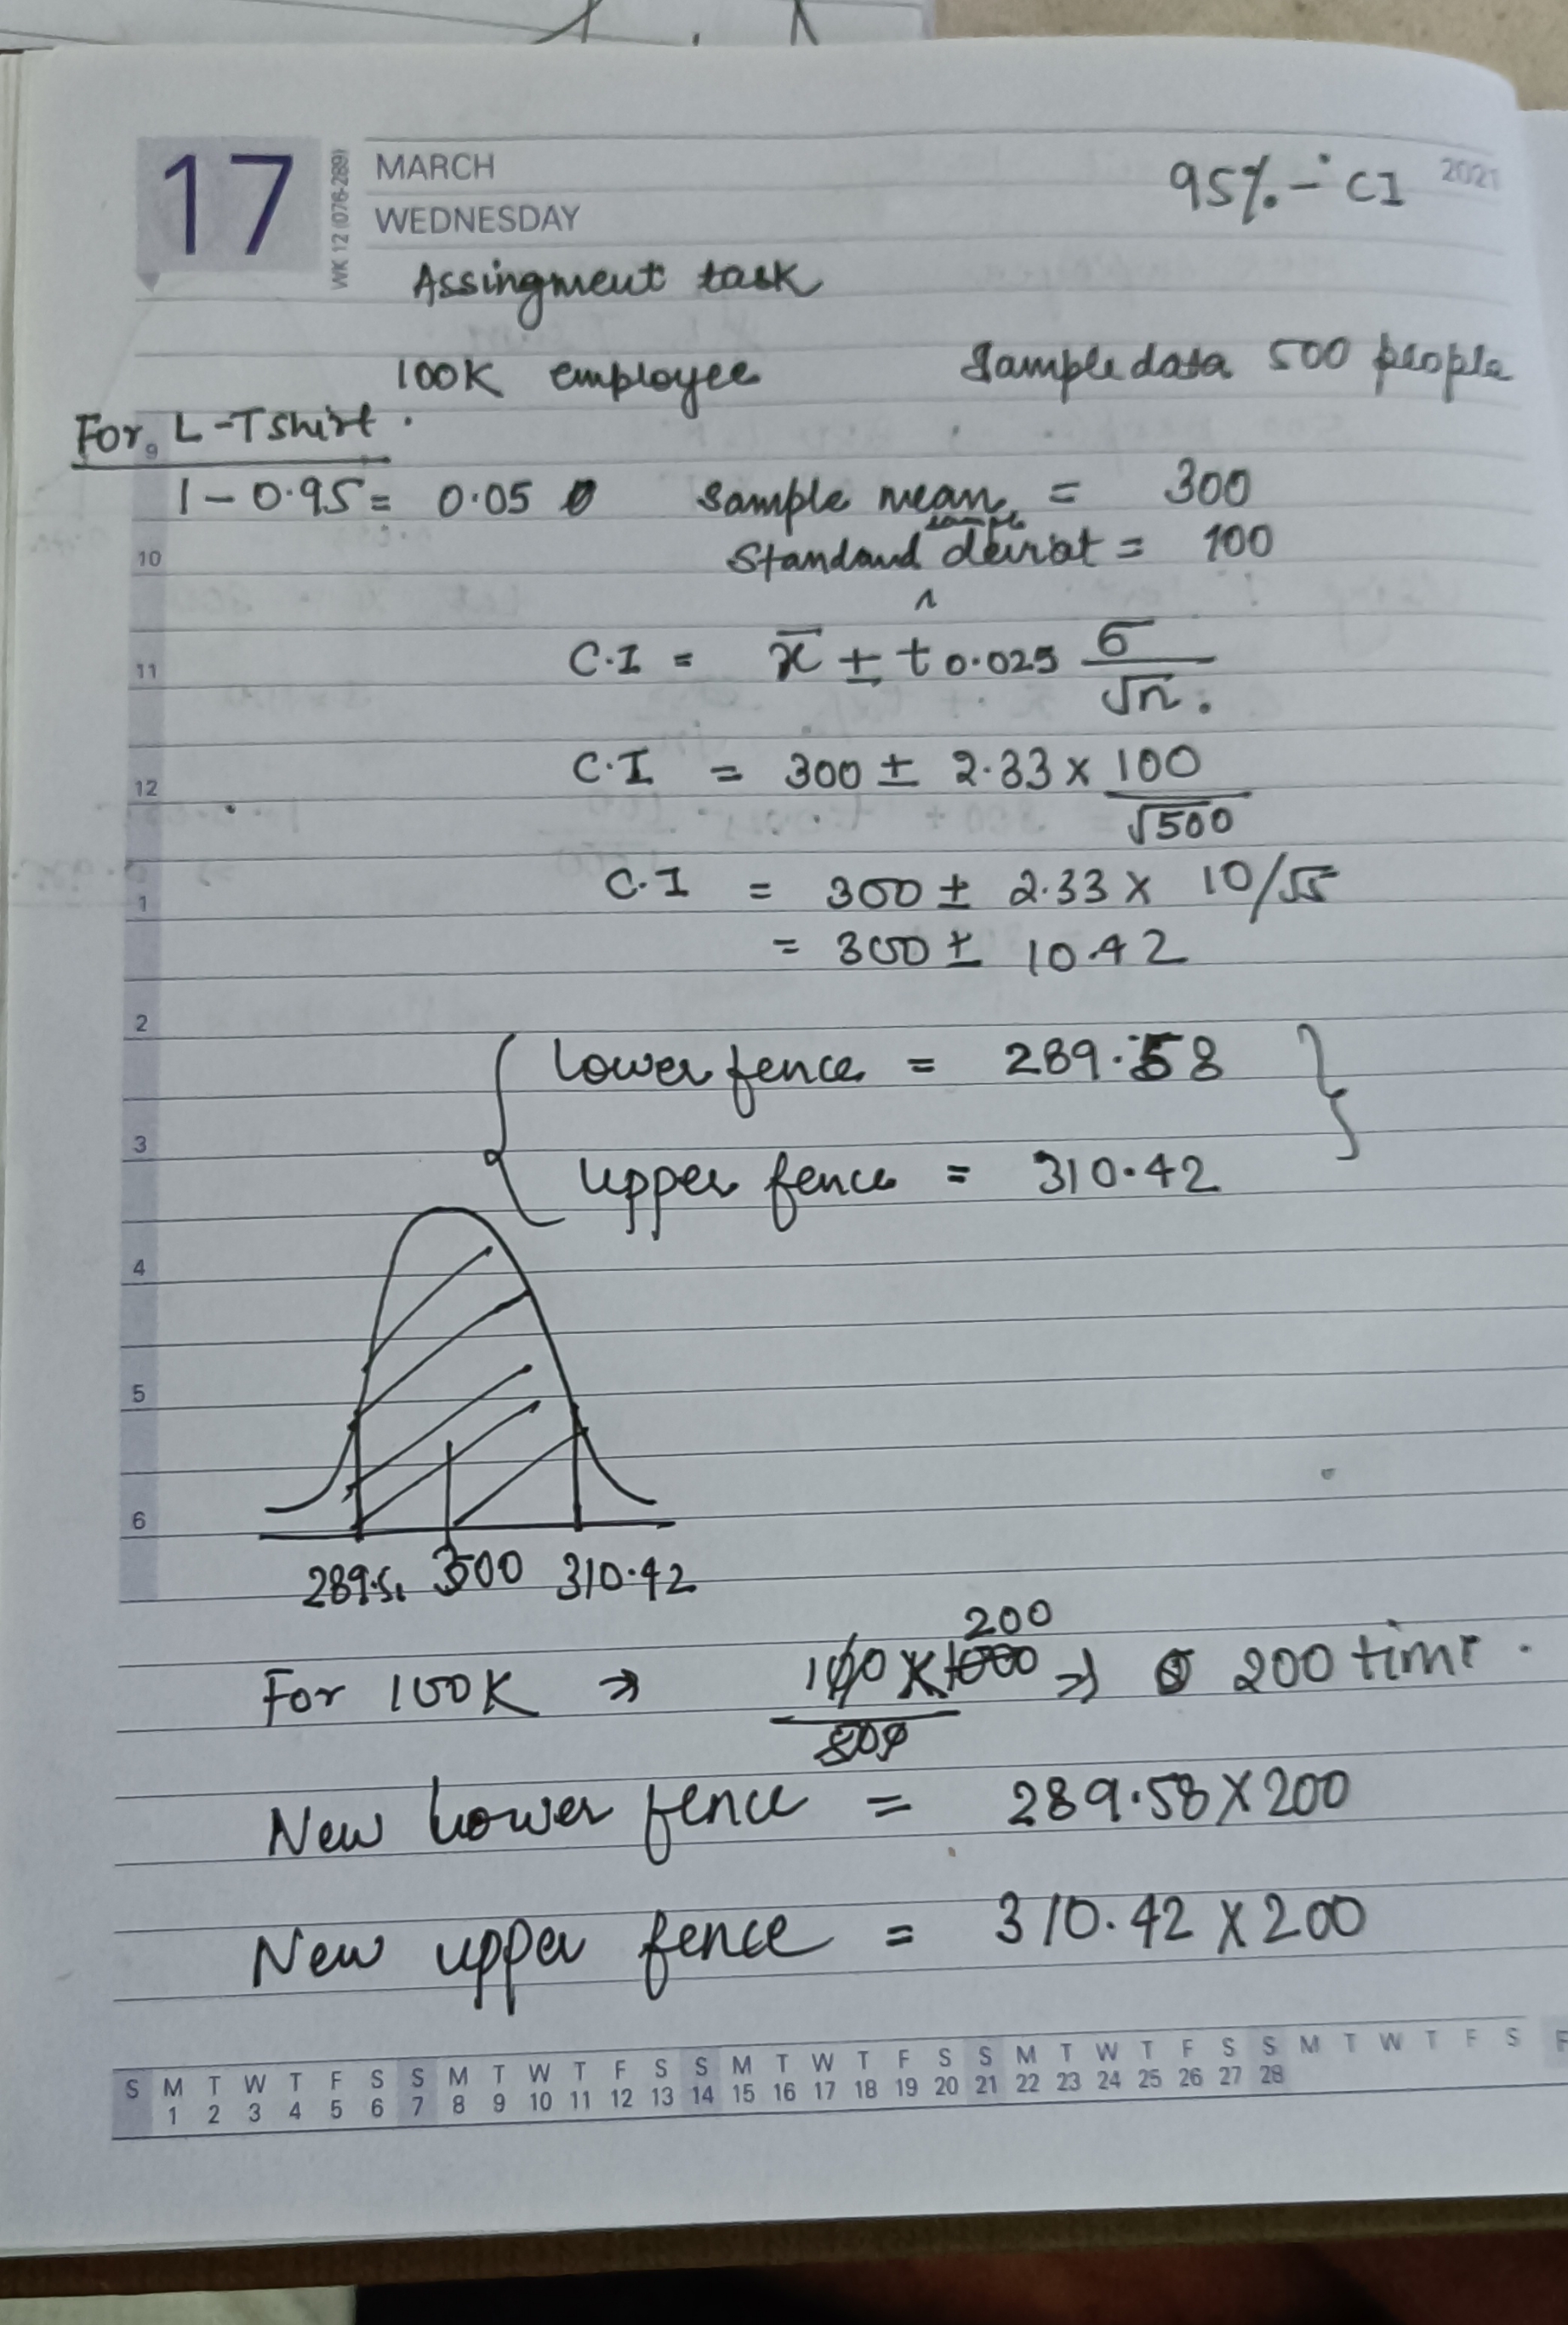 17
WK 12 (076-289)
MARCH
WEDNESDAY
95% - CI
2021
Assingment task
100K employee
Sample data 500 people
For, L-Tshirt .
9
1 - 0.95 = 0.05
sample mean = 300
sample
10
Standard deviat = 100
11
C.I = x̄ ± t0.025 σ/√n.
12
C.I = 300 ± 2.33 x 100/√500
1
C.I = 300 ± 2.33 x 10/√5
= 300 ± 10.42
2
lower fence = 289.58
3
upper fence = 310.42
4
5
6
300 310.42
200
For 100K ⇒ 100 x 1000/500 ⇒ 200 time .
New Lower fence = 289.58 X 200
New upper fence = 310.42 X 200
S M T W T F S S M T W T F S S M T W T F S S M T W T F S S M T W T F S
1 2 3 4 5 6 7 8 9 10 11 12 13 14 15 16 17 18 19 20 21 22 23 24 25 26 27 28